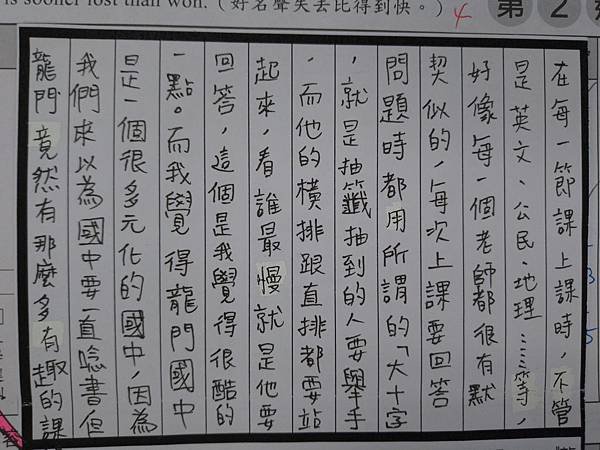 is sooner lost than won.（好名聲失去比得到快。）
4
第2
在每一節課上課時，不管
是英文、公民、地理……等，
好像每一個老師都很有默
契似的，每次上課要回答
問題時都用所謂的「大十字
，就是抽籤抽到的人要舉手
，而他的橫排跟直排都要站
起來，看誰最慢就是他要
回答，這個是我覺得很酷的
一點。而我覺得龍門國中
是一個很多元化的國中，因為
我們來以為國中要一直唸書但
龍門竟然有那麼多有趣的課